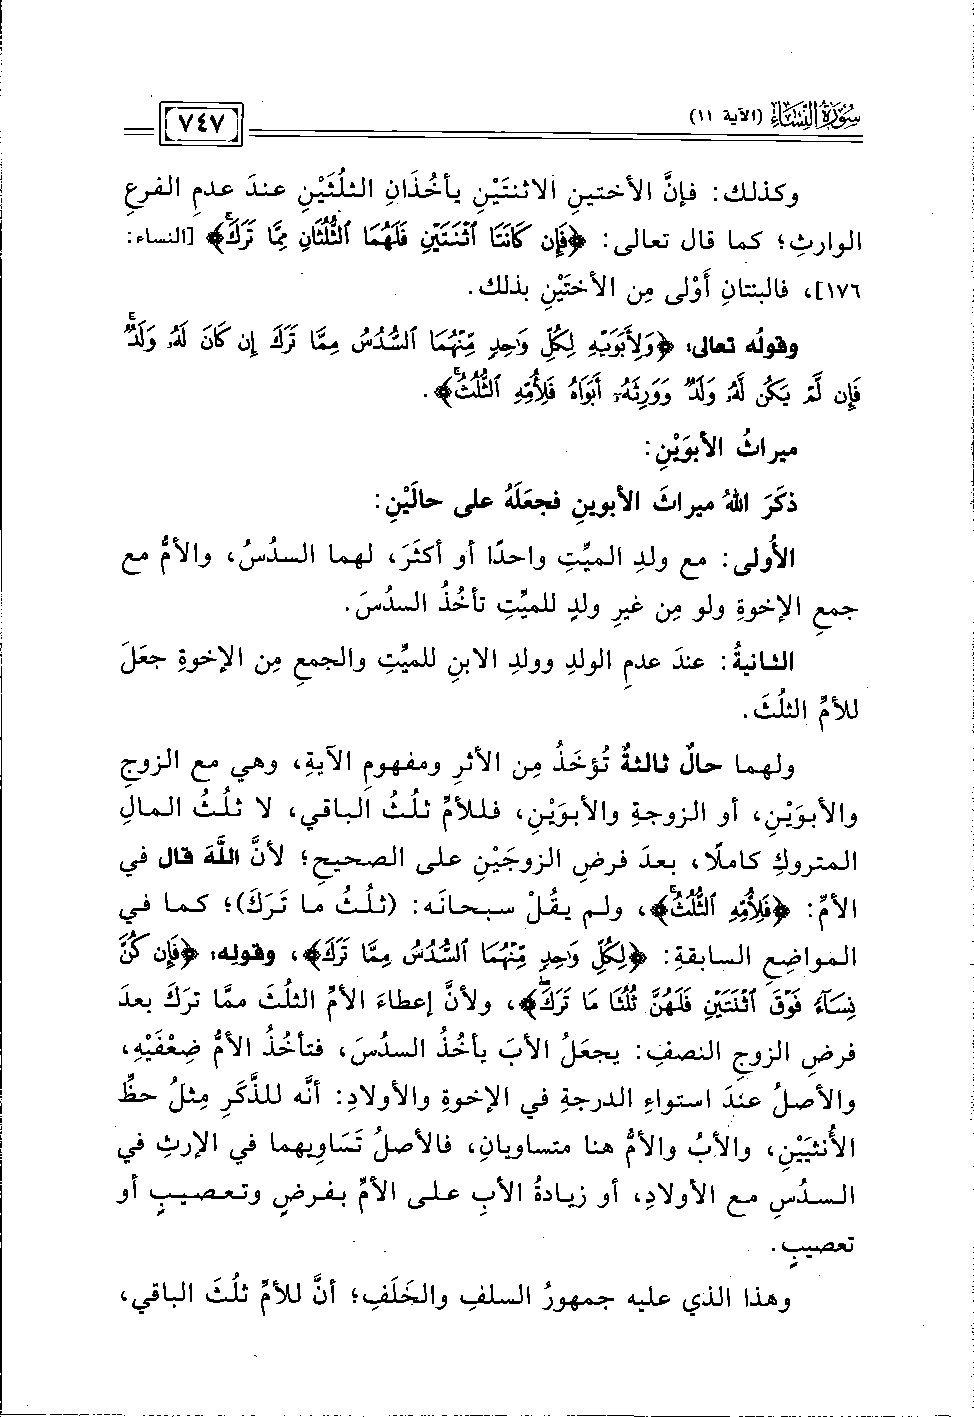 سُورَةُ النِّسَاءِ (الآية ١١)
٧٤٧
وكذلك: فإنَّ الأختينِ الاثنتَيْنِ يأخُذَانِ الثلُثَيْنِ عندَ عدمِ الفرعِ
الوارثِ؛ كما قال تعالى: ﴿فَإِن كَانَتَا ٱثْنَتَيْنِ فَلَهُمَا ٱلثُّلُثَانِ مِمَّا تَرَكَۚ﴾ [النساء:
١٧٦]، فالبنتانِ أَوْلى مِن الأختَيْنِ بذلك.
وقولُه تعالى: ﴿وَلِأَبَوَيْهِ لِكُلِّ وَٰحِدٍ مِّنْهُمَا ٱلسُّدُسُ مِمَّا تَرَكَ إِن كَانَ لَهُۥ وَلَدٌۚ
فَإِن لَّمْ يَكُن لَّهُۥ وَلَدٌ وَوَرِثَهُۥٓ أَبَوَاهُ فَلِأُمِّهِ ٱلثُّلُثُۚ﴾.
ميراثُ الأبوَيْنِ:
ذكَرَ اللهُ ميراثَ الأبوينِ فجعَلَهُ على حالَيْنِ:
الأُولى: مع ولدِ الميِّتِ واحدًا أو أكثَرَ، لهما السدُسُ، والأمُّ مع
جمعِ الإخوةِ ولو مِن غيرِ ولدٍ للميِّتِ تأخُذُ السدُسَ.
الثانيةُ: عندَ عدمِ الولدِ وولدِ الابنِ للميِّتِ والجمعِ مِن الإخوةِ جعَلَ
للأمِّ الثلُثَ.
ولهما حالٌ ثالثةٌ تُؤخَذُ مِن الأثرِ ومفهومِ الآيةِ، وهي مع الزوجِ
والأبوَيْنِ، أو الزوجةِ والأبوَيْنِ، فللأمِّ ثلُثُ الباقي، لا ثلُثُ المالِ
المتروكِ كاملًا، بعدَ فرضِ الزوجَيْنِ على الصحيحِ؛ لأنَّ اللَّهَ قال في
الأمِّ: ﴿فَلِأُمِّهِ ٱلثُّلُثُۚ﴾، ولم يقُلْ سبحانَه: (ثلُثُ ما تَرَكَ)؛ كما في
المواضِعِ السابقةِ: ﴿لِكُلِّ وَٰحِدٍ مِّنْهُمَا ٱلسُّدُسُ مِمَّا تَرَكَ﴾، وقولِه: ﴿فَإِن كُنَّ
نِسَآءً فَوْقَ ٱثْنَتَيْنِ فَلَهُنَّ ثُلُثَا مَا تَرَكَۖ﴾، ولأنَّ إعطاءَ الأمِّ الثلُثَ ممَّا ترَكَ بعدَ
فرضِ الزوجِ النصفِ: يجعَلُ الأبَ يأخُذُ السدُسَ، فتأخُذُ الأمُّ ضِعْفَيْهِ،
والأصلُ عندَ استواءِ الدرجةِ في الإخوةِ والأولادِ: أنَّه للذَّكَرِ مِثلُ حظِّ
الأُنثيَيْنِ، والأبُ والأمُّ هنا متساويانِ، فالأصلُ تَسَاوِيهما في الإرثِ في
السدُسِ مع الأولادِ، أو زيادةُ الأبِ على الأمِّ بفرضٍ وتعصيبٍ أو
تعصيبٍ.
وهذا الذي عليه جمهورُ السلفِ والخَلَفِ؛ أنَّ للأمِّ ثلُثَ الباقي،